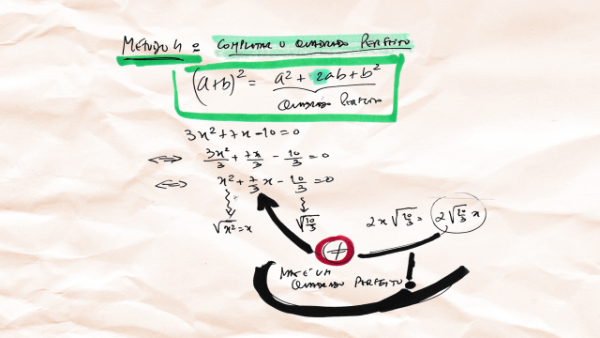 MÉTODO 4: COMPLETAR O QUADRADO PERFEITO
(a+b)² = a² + 2ab + b²
QUADRADO PERFEITO
3x² + 7x - 10 = 0
⇔ 3x²/3 + 7x/3 - 10/3 = 0
⇔ x² + 7/3 x - 10/3 = 0
√x² = x √10/3 2x√10/3 = 2√10/3 x
≠
NÃO É UM
QUADRADO PERFEITO